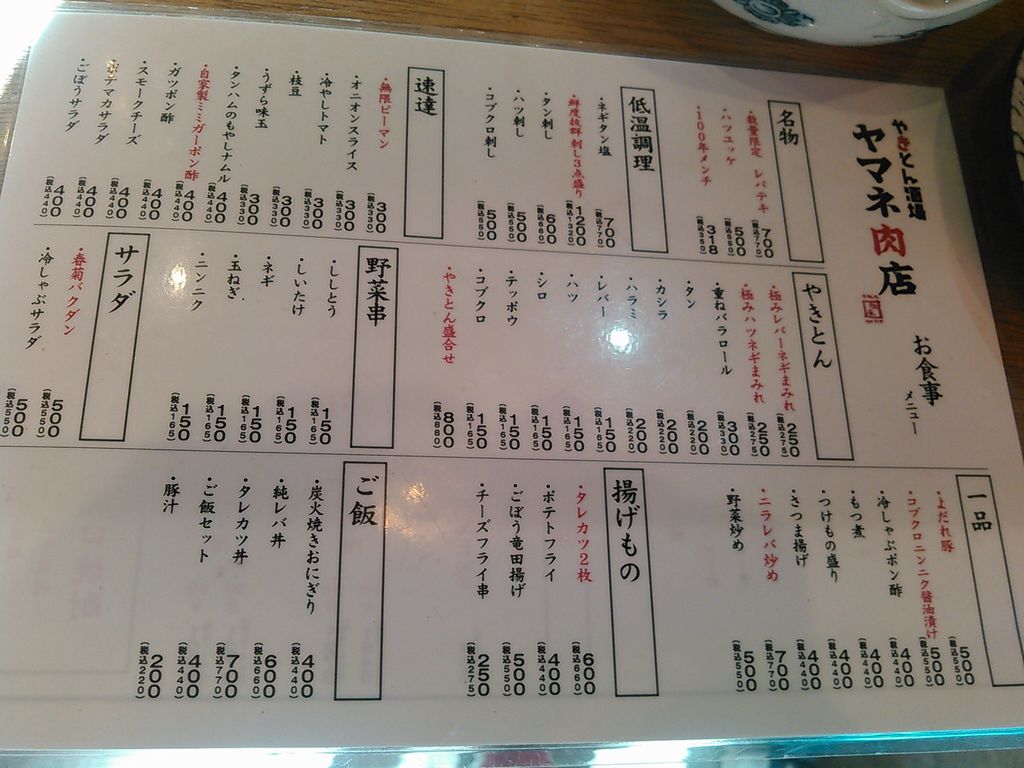 やきとん酒場
ヤマネ肉店
お食事
メニュー
名物
・数量限定 レバテキ 700 (税込770)
・ハツユッケ 500 (税込550)
・100年メンチ 318 (税込350)
低温調理
・ネギタン塩 700 (税込770)
・鮮度抜群刺し3点盛り 1200 (税込1320)
・タン刺し 600 (税込660)
・ハツ刺し 500 (税込550)
・コブクロ刺し 500 (税込550)
速達
・無限ピーマン 300 (税込330)
・オニオンスライス 300 (税込330)
・冷やしトマト 300 (税込330)
・枝豆 300 (税込330)
・うずら味玉 300 (税込330)
・タンハムのもやしナムル 400 (税込440)
・自家製ミミガーポン酢 400 (税込440)
・ガツポン酢 400 (税込440)
・スモークチーズ 400 (税込440)
・ポテマカサラダ 400 (税込440)
・ごぼうサラダ 400 (税込440)
やきとん
・極みレバーネギまみれ 250 (税込275)
・極みハツネギまみれ 250 (税込275)
・重ねバラロール 300 (税込330)
・タン 200 (税込220)
・カシラ 200 (税込220)
・ハラミ 200 (税込220)
・レバー 150 (税込165)
・ハツ 150 (税込165)
・シロ 150 (税込165)
・テッポウ 150 (税込165)
・コブクロ 150 (税込165)
・やきとん盛合せ 800 (税込880)
野菜串
・ししとう 150 (税込165)
・しいたけ 150 (税込165)
・ネギ 150 (税込165)
・玉ねぎ 150 (税込165)
・ニンニク 150 (税込165)
サラダ
・春菊バクダン 500 (税込550)
・冷しゃぶサラダ 500 (税込550)
一品
・よだれ豚 500 (税込550)
・コブクロニンニク醤油漬け 500 (税込550)
・冷しゃぶポン酢 400 (税込440)
・もつ煮 400 (税込440)
・つけもの盛り 400 (税込440)
・さつま揚げ 400 (税込440)
・ニラレバ炒め 700 (税込770)
・野菜炒め 500 (税込550)
揚げもの
・タレカツ2枚 600 (税込660)
・ポテトフライ 400 (税込440)
・ごぼう竜田揚げ 500 (税込550)
・チーズフライ串 250 (税込275)
ご飯
・炭火焼きおにぎり 400 (税込440)
・純レバ丼 600 (税込660)
・タレカツ丼 700 (税込770)
・ご飯セット 400 (税込440)
・豚汁 200 (税込220)